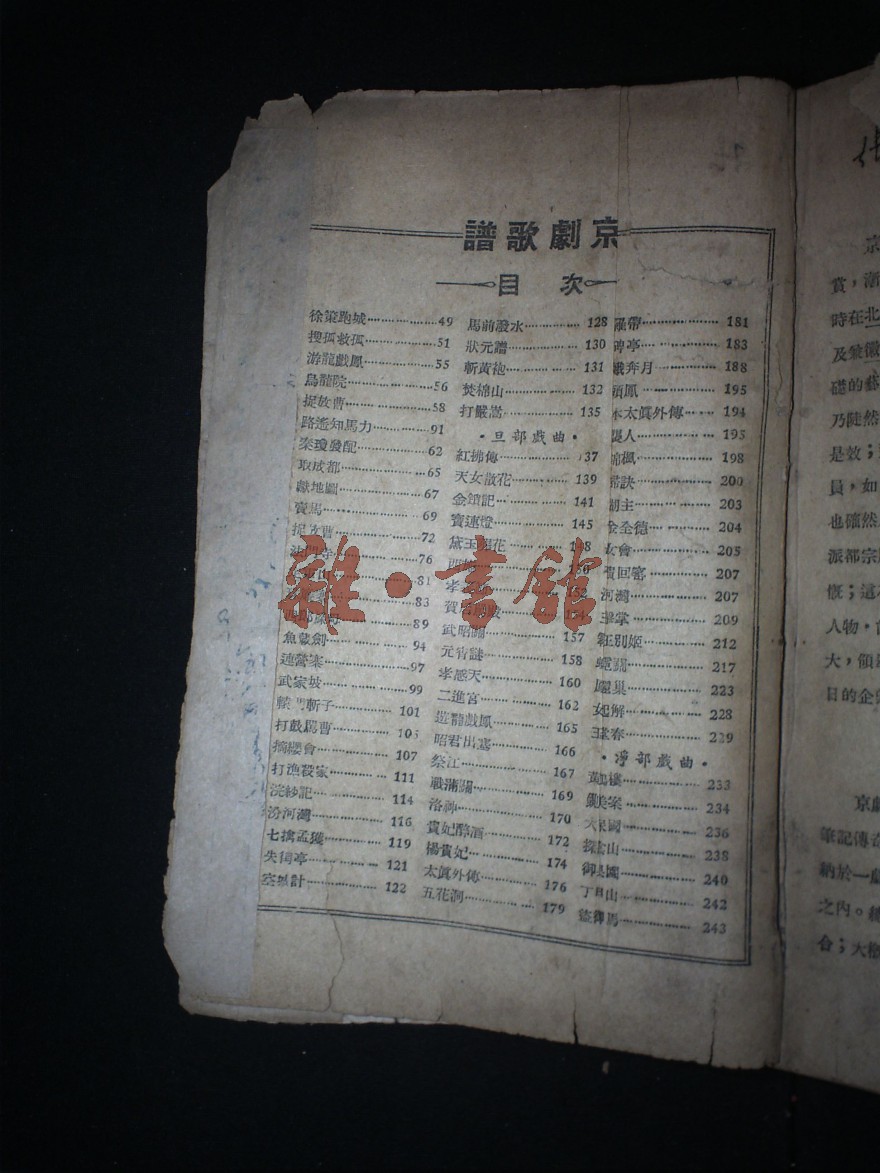 京劇歌譜
目次
徐策跑城 49
搜孤救孤 51
游龍戲鳳 55
烏龍院 56
捉放曹 58
路遙知馬力 91
秦瓊發配 62
取成都 65
獻地圖 67
賣馬 69
捉放曹 72
76
81
83
89
魚藏劍 94
連營寨 97
武家坡 99
轅門斬子 101
打鼓罵曹 105
摘纓會 107
打漁殺家 111
浣紗記 114
汾河灣 116
七擒孟獲 119
失街亭 121
空城計 122
馬前潑水 128
狀元譜 130
斬黃袍 131
焚棉山 132
打嚴嵩 135
·旦部戲曲·
紅拂傳 37
天女散花 139
金鎖記 141
寶連燈 145
黛玉葬花 148
150
152
154
武昭關 157
元宵謎 158
孝感天 160
二進宮 162
遊龍戲鳳 165
昭君出塞 166
祭江 167
戰蒲關 169
洛神 170
貴妃醉酒 172
楊貴妃 174
太眞外傳 176
五花洞 179
羅帶 181
碑亭 183
娥奔月 188
鳳 195
本太眞外傳 194
襲人 195
楓 198
訣 200
主 203
金全德 204
女會 205
費回窰 207
河灣 207
掌 209
王別姬 212
關 217
巢 223
起解 228
堂春 229
·淨部戲曲·
黃鶴樓 233
鍘美案 234
大保國 236
探陰山 238
御果園 240
丁甲山 242
盜御馬 243
京
賞，漸
時在北
及兼徽
礎的藝
乃陡然
是效；
員，如
也確然
派都宗
慨；這
人物，
大，領
日的企
京劇
筆記傳奇
納於一
之內。總
合；大
雜·書館